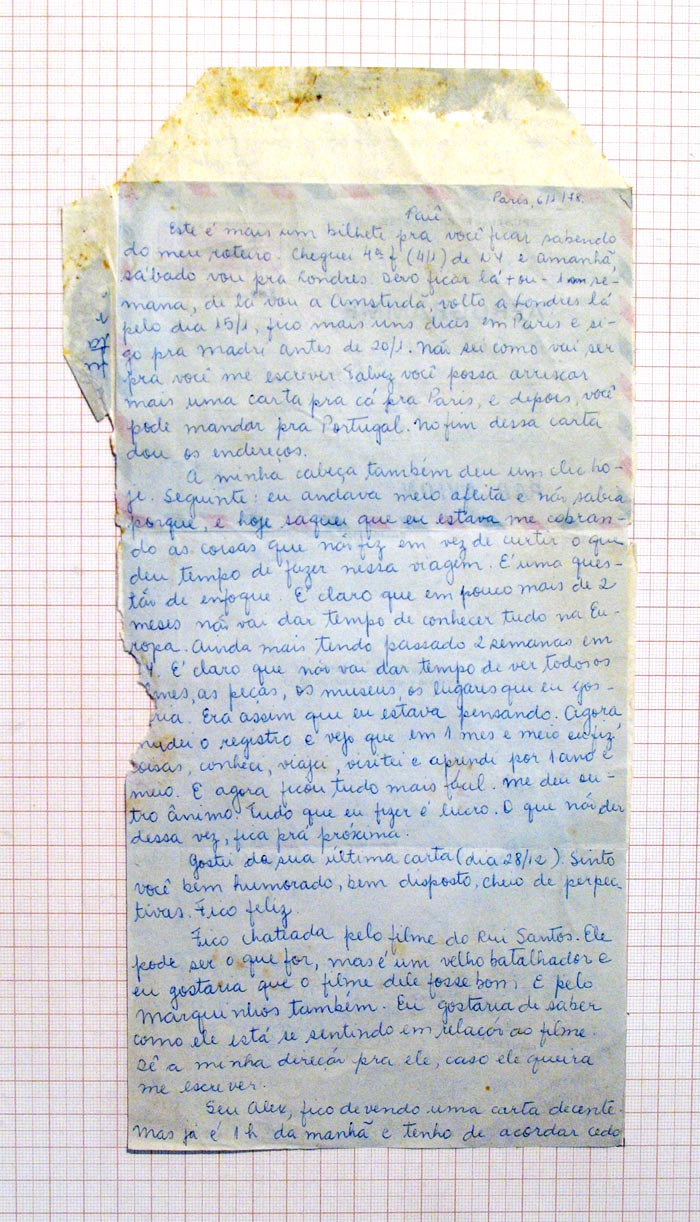 Paris, 6/1/78.
Paiê
Este é mais um bilhete pra você ficar sabendo
do meu roteiro. Cheguei 4ª f (4/1) de NY e amanhã,
sábado vou pra Londres. Devo ficar lá + ou - 1 se-
mana, de lá vou a Amsterdã, volto a Londres lá
pelo dia 15/1, fico mais uns dias em Paris e si-
go pra Madri antes de 20/1. Não sei como vai ser
pra você me escrever. Talvez você possa arriscar
mais uma carta pra cá pra Paris, e depois, você
pode mandar pra Portugal. No fim dessa carta
dou os endereços.
A minha cabeça também deu um clic ho-
je. Seguinte: eu andava meio aflita e não sabia
porque, e hoje saquei que eu estava me cobran-
do as coisas que não fiz em vez de curtir o que
deu tempo de fazer nessa viagem. É uma ques-
tão de enfoque. É claro que em pouco mais de 2
meses não vai dar tempo de conhecer tudo na Eu-
ropa. Ainda mais tendo passado 2 semanas em
Y. É claro que não vai dar tempo de ver todos os
lmes, as peças, os museus, os lugares que eu gos-
ria. Era assim que eu estava pensando. Agora,
mudei o registro e vejo que em 1 mes e meio eu fiz
coisas, conheci, viajei, visitei e aprendi por 1 ano e
meio. E agora ficou tudo mais fácil. Me deu ou-
tro ânimo. Tudo que eu fizer é lucro. O que não der
dessa vez, fica pra próxima.
Gostei da sua última carta (dia 28/12). Sinto
você bem humorado, bem disposto, cheio de perpec-
tivas. Fico feliz.
Fico chateada pelo filme do Rui Santos. Ele
pode ser o que for, mas é um velho batalhador e
eu gostaria que o filme dele fosse bom. E pelo
Marquinhos também. Eu gostaria de saber
como ele está se sentindo em relação ao filme.
Dê a minha direção pra ele, caso ele queira
me escrever.
Seu Alex, fico devendo uma carta decente.
Mas já é 1 h da manhã e tenho de acordar cedo